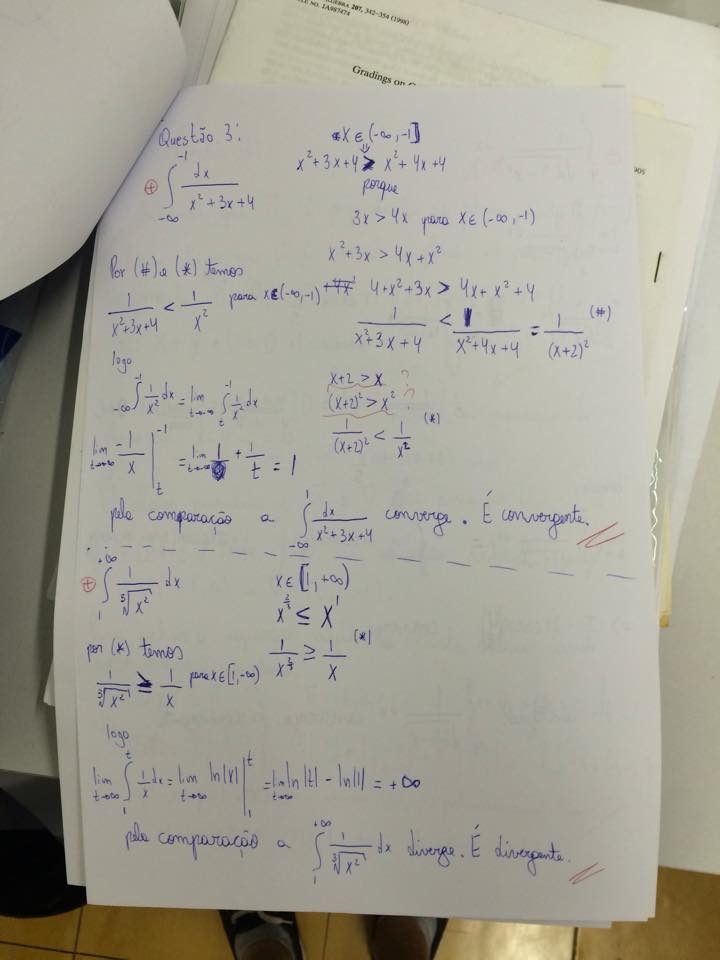 ALGEBRA 207, 342–354 (1998)
LE NO. IA987474
Gradings on
Questão 3:
x ∈ (-∞, -1]
⇓
⊕ ∫_{-∞}^{-1} dx/(x²+3x+4)
x²+3x+4 > x²+4x+4
porque
3x > 4x para x ∈ (-∞, -1)
x²+3x > 4x+x²
Por (#) e (*) temos
4+x²+3x > 4x+x²+4
1/(x²+3x+4) < 1/x² para x ∈ (-∞, -1)
1/(x²+3x+4) < 1/(x²+4x+4) = 1/(x+2)² (#)
logo
x+2 > x ?
∫_{-∞}^{-1} 1/x² dx = lim_{t→-∞} ∫_{t}^{-1} 1/x² dx
(x+2)² > x² ?
1/(x+2)² < 1/x² (*)
lim_{t→-∞} -1/x |_{t}^{-1} = lim_{t→-∞} 1 + 1/t = 1
pela comparação a ∫_{-∞}^{1} dx/(x²+3x+4) converge. É convergente.
⊕ ∫_{1}^{+∞} 1/∛(x²) dx
x ∈ [1, +∞)
x^{2/3} ≤ x^1
por (*) temos
1/x^{2/3} ≥ 1/x (*)
1/∛(x²) ≥ 1/x para x ∈ [1, -∞)
logo
lim_{t→∞} ∫_{1}^{t} 1/x dx = lim_{t→∞} ln|x| |_{1}^{t} = lim_{t→∞} ln|t| - ln|1| = +∞
pela comparação a ∫_{1}^{+∞} 1/∛(x²) dx diverge. É divergente.